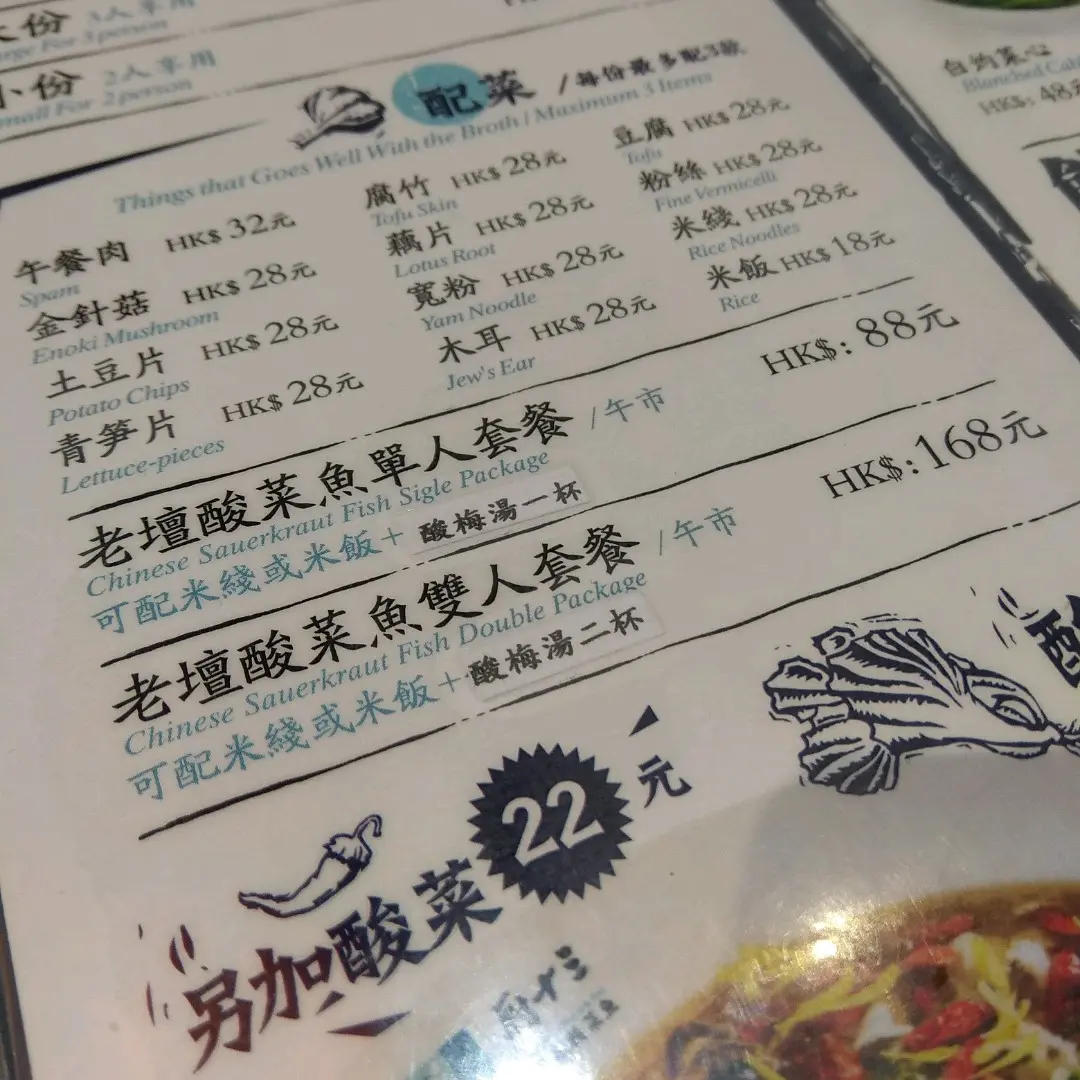 份 3人享用
Large For 3 person
小份 2人享用
Small For 2 person
配菜 /每份最多配3款
Things that Goes Well With the Broth / Maximum 3 Items
午餐肉 HK$ 32元
Spam
金針菇 HK$ 28元
Enoki Mushroom
土豆片 HK$ 28元
Potato Chips
青笋片 HK$ 28元
Lettuce-pieces
腐竹 HK$ 28元
Tofu Skin
藕片 HK$ 28元
Lotus Root
寬粉 HK$ 28元
Yam Noodle
木耳 HK$ 28元
Jew's Ear
豆腐 HK$ 28元
Tofu
粉絲 HK$ 28元
Fine Vermicelli
米綫 HK$ 28元
Rice Noodles
米飯 HK$ 18元
Rice
老壇酸菜魚單人套餐 /午市 HK$: 88元
Chinese Sauerkraut Fish Sigle Package
可配米綫或米飯+ 酸梅湯一杯
老壇酸菜魚雙人套餐 /午市 HK$: 168元
Chinese Sauerkraut Fish Double Package
可配米綫或米飯+ 酸梅湯二杯
另加酸菜 22元
白灼菜心
Blanched
HK$: 48
酸